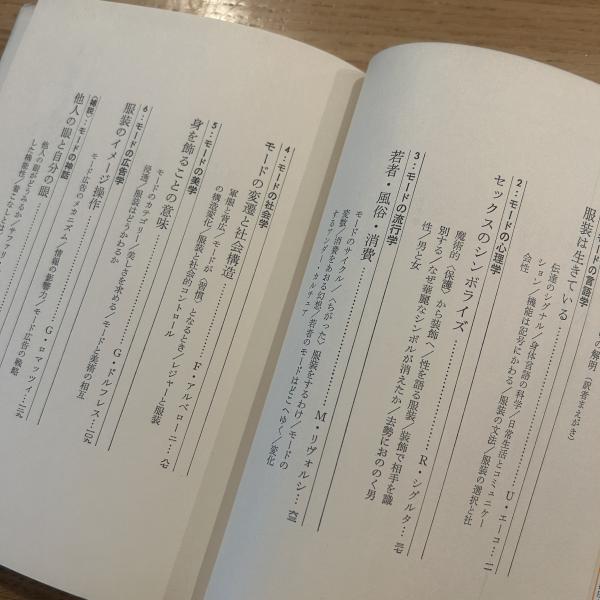 の解明(訳者まえがき)
モードの言語学
服装は生きている……U・エーコ…一一
伝達のシグナル/身体言語の科学/日常生活とコミュニケー
ション/機能は記号にかわる/服装の文法/服装の選択と社
会性
2：モードの心理学
セックスのシンボライズ……R・シグルタ…三七
魔術的〈保護〉から装飾へ/性を語る服装/装飾で相手を識
別する/なぜ華麗なシンボルが消えたか/去勢におののく男
性/男と女
3：モードの流行学
若者・風俗・消費……M・リヴォルシ…六三
モードのサイクル/〈ちがった〉服装をするわけ/モードの
変数/消費をあおる幻想/若者のモードはどこへゆく/変化
するアンダー・カルチュア
4：モードの社会学
モードの変遷と社会構造……F・アルベローニ…八七
軍服と背広/モードが〈習慣〉となるとき/レジャーと服装
の構造変化/服装と社会的コントロール
5：モードの美学
身を飾ることの意味……G・ドルフレス…一〇九
モードのカテゴリー/美しさを求める/モードと美術の相互
浸透/服装はどうかわるか
6：モードの広告学
服装のイメージ操作……G・ロマッツィ…一二九
モード広告のメカニズム/情報の影響力/モード広告の戦略
〈雑説〉：モードの神話
他人の眼と自分の眼
他人の眼がどうみるか/
した機能性/着こなしとは